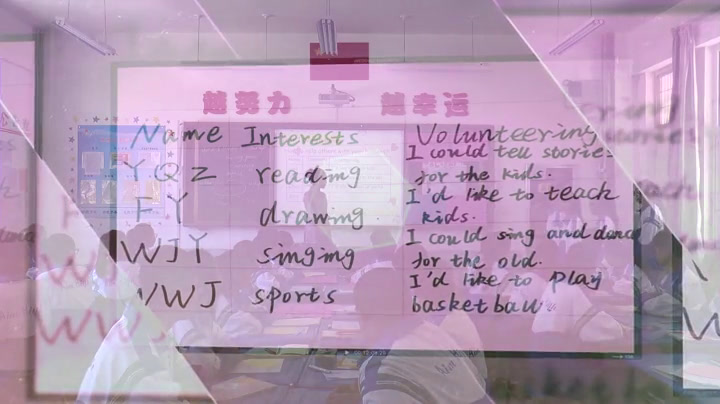 越努力 越幸运
Name Interests Volunteering
YQZ reading I could tell stories for the kids.
FY drawing I'd like to teach kids.
WJY singing I could sing and dance for the old.
WWJ sports I'd like to play basketball